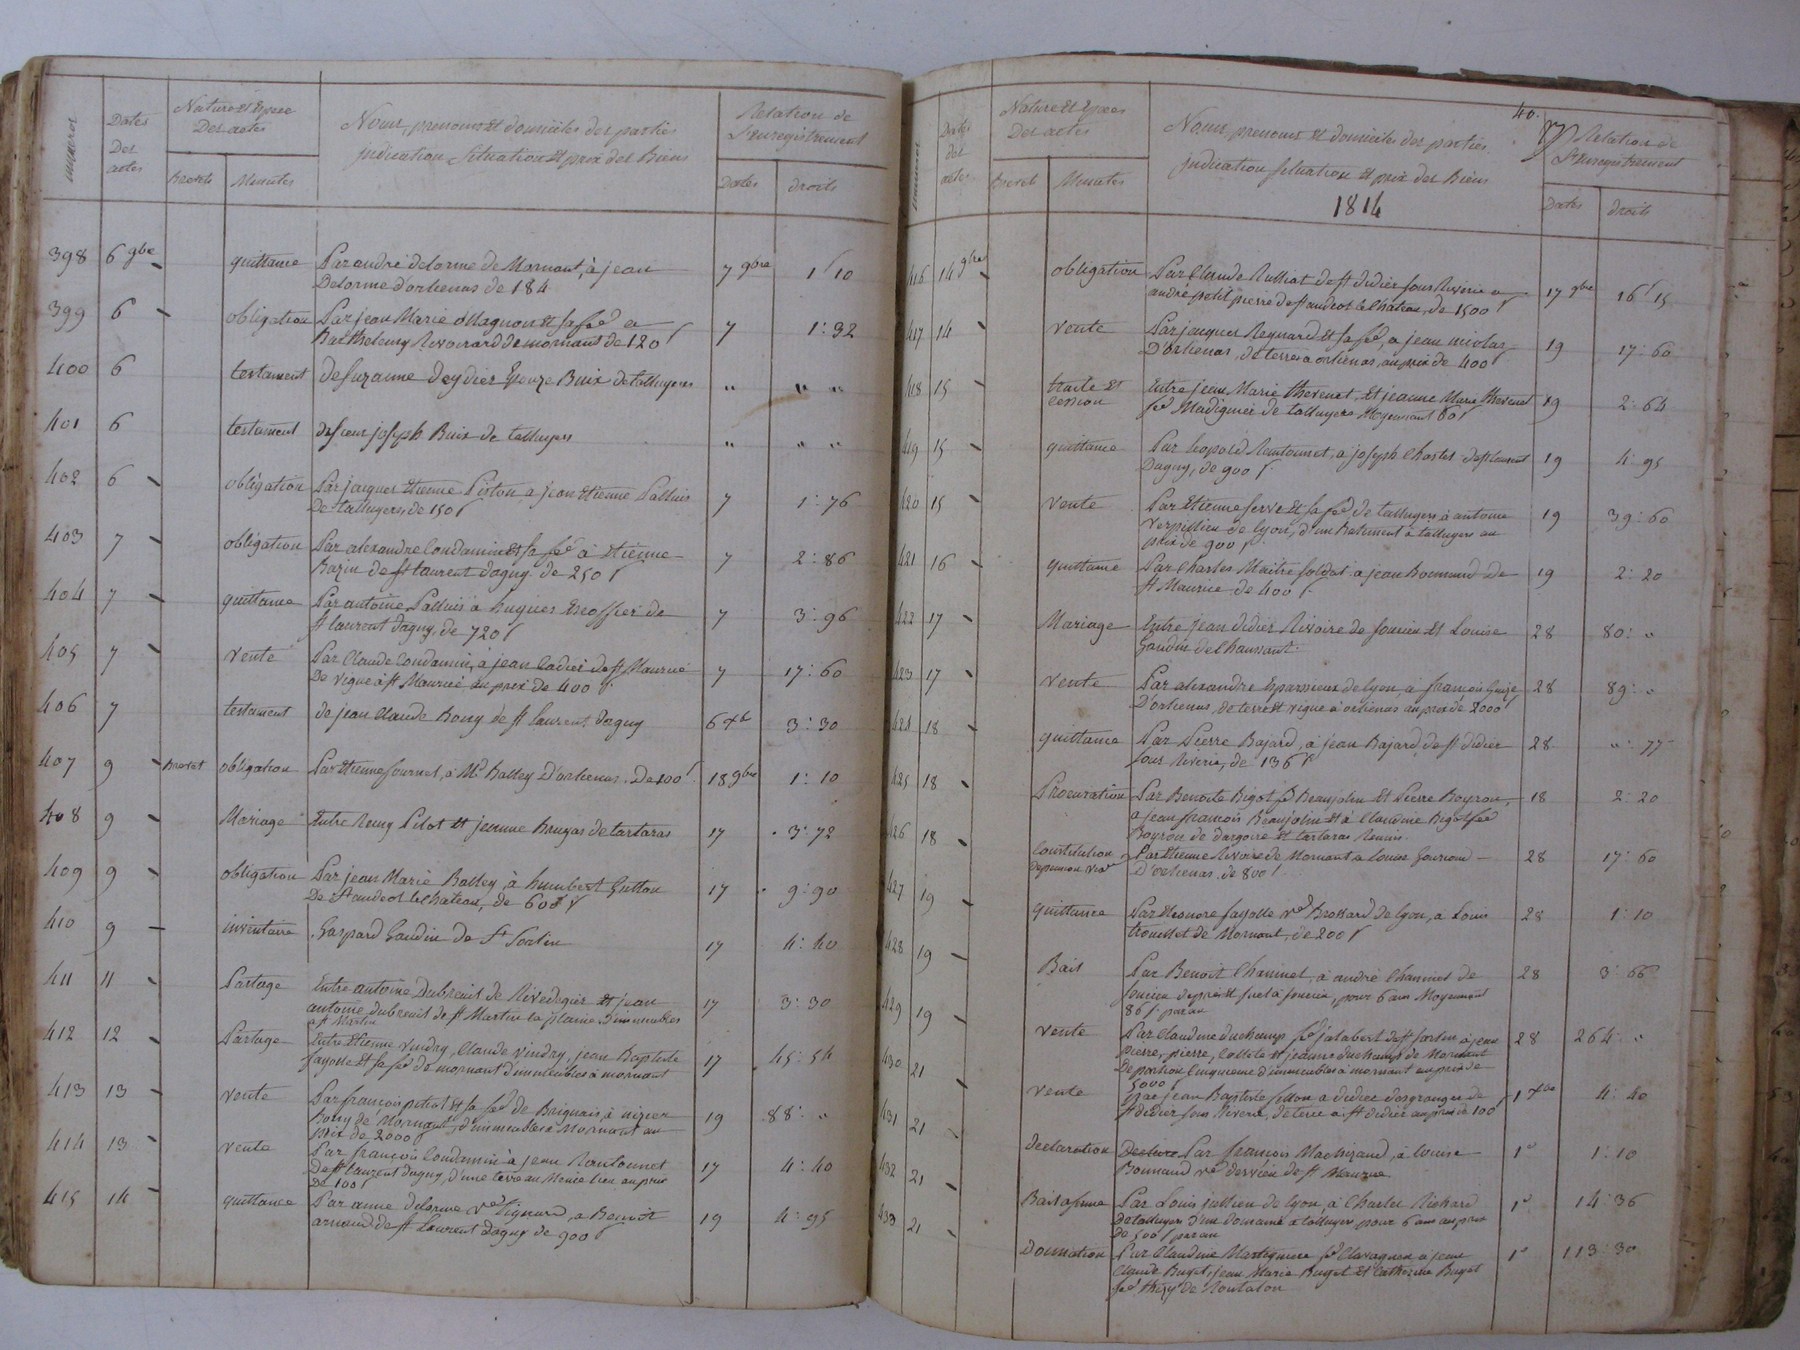 numeros
Dates
Des
actes
Nature et Espece
Des actes
Brevets
Minutes
Noms, prenoms et domiciles des parties
indication, situation et prix des Biens
Relation de
L'enregistrement
Dates
droits
398 6 9bre quittance Par andré delorme de Mornant, à jean 7 9bre 1f 10
Delorme d'orlienas de 184
399 6 obligation Par jean Marie Magnon et sa fe a 7 1: 32
Barthelemy Rivoirard de mornant de 120f
400 6 testament de suzanne Deydier Epouze Buix de talluyers " " "
401 6 testament de sieur joseph Buix de talluyers " " "
402 6 obligation Par jacques Etienne Piston a jean Etienne Palluis 7 1: 76
De talluyers de 150f
403 7 obligation Par alexandre Condamin et sa fe à Etienne 7 2: 86
Bazin de st laurent dagny de 250f
404 7 quittance Par antoine Palluis a hugues Escoffier de 7 3: 96
st laurent dagny, de 720f
405 7 vente Par Claude Condamin, à jean Cadier de st Maurice 7 17: 60
De vigne à st Maurice au prix de 400f
406 7 testament de jean Claude Bory de st laurent dagny 6 xbre 3: 30
407 9 Brevet obligation Par Etienne fournel, à Me Balley D'orlienas. De 100f 18 9bre 1: 10
408 9 Mariage Entre Remy Pilot et jeanne Bruyas de tartaras 17 3: 72
409 9 obligation Par jean Marie Balley, à humbert Gutton 17 9: 90
De St andeol le chateau, de 600f
410 9 inventaire Gaspard Gaudin de St Sorlin 17 4: 40
411 11 Partage Entre antoine Dubreuil de Rivedegier et jean 17 3: 30
antoine dubreuil de st Martin la plaine D'immeubles
a st Martin
412 12 Partage Entre Etienne Vindry, Claude Vindry, jean Baptiste 17 45: 54
fayolle et sa fe de mornant d'immeubles à mornant
413 13 vente Par françois petiot et sa fe de Brignais, à nizier 19 88: "
Bory de Mornant, d'immeubles a Mornant au
prix de 2000f
414 13 vente Par françois Condamin à jean Rantonnet 17 4: 40
De st laurent dagny, d'une terre au Meme lieu au prix
de 100f
415 14 quittance Par anne delorme ve Pignard, a Benoit 19 4: 95
arnaud de st Laurent dagny de 900f
numeros
Dates
des
actes
Nature et Espece
Des actes
Brevets
Minutes
Noms, prenoms et domiciles des parties
indication situation et prix des Biens
1814
40.
Relation de
L'enregistrement
Dates
droits
416 14 9bre obligation Par Claude Rulliat de st didier sous Riverie a 17 9bre 16f 15
andré petit pierre de st andeol le chateau, de 1500f
417 14 vente Par jacques Reynard et sa fe, a jean nicolas 19 17: 60
D'orlienas, de terre a orlienas, au prix de 400f
418 15 traité et Entre jean Marie thevenet, Et jeanne Marie thevenet 19 2: 64
Cession fe Madignier de talluyers Moyennant 80f
419 15 quittance Par leopold Rantonnet, a joseph Charles de st laurent 19 4: 95
Dagny, de 900f
420 15 vente Par Etienne ferre et sa fe de talluyers à antoine 19 39: 60
Verpillieu de lyon, d'un Batiment à talluyers au
prix de 900f
421 16 quittance Par Charles Maitre soldat a jean Bonnand de 19 2: 20
st Maurice de 400f
422 17 Mariage Entre jean didier Rivoire de soucieu et Louise 28 80: "
Gaudin de Chaussant
423 17 vente Par alexandre Eparssieux de lyon, à françois Guize 28 89: "
D'orlienas, de terre et vigne à orlienas au prix de 2000f
424 18 quittance Par Pierre Bajard, à jean Bajard, de st didier 28 ": 77
sous Riverie, de 136f
425 18 Procuration Par Benoite Bigot fe Beaujolin et Pierre Boyron, 18 2: 20
a jean francois Beaujolin et à Claudine Bigot fe
Boyron de dargoire et tartaras Reunis
426 18 Constitution Par Etienne Rivoire de Mornant a Louise 28 17: 60
de pension D'orlienas de 800f
427 19 quittance Par Eleonore fayolle ve Brossard de lyon, à Louis 28 1: 10
trouillet de Mornant, de 200f
428 19 Bail Par Benoit Chaninel, à andré Chaninel de 28 3: 66
soucieu, pour 6 ans Moyennant
86f par an
429 19 vente Par Claudine duchamp fe jalabert de st sorlin à jean 28 264: "
pierre, pierre, Collete et jeanne duchamp de Mornant
De portion d'immeubles à mornant au prix de
5000f
430 21 vente Par jean Baptiste sillon a didier desgranges de 1 xbre 4: 40
st didier sous Riverie, de terre à st didier au prix de 100f
431 21 Declaration Par françois Machizaud, à Louise 1er 1: 10
Bonnand ve de st Maurice
432 21 Bail a ferme Par Louis jullien de lyon, à Charles Richard 1er 14: 36
De talluyers d'un domaine a talluyers pour 6 ans au prix
de 500f par an
433 21 Donnation Par Claudine Martiguiere fe Clavagnon à jean 1er 113: 30
Claude Buyet, jean Marie Buyet et Catherine Buyet
fe thizy de Rontalon